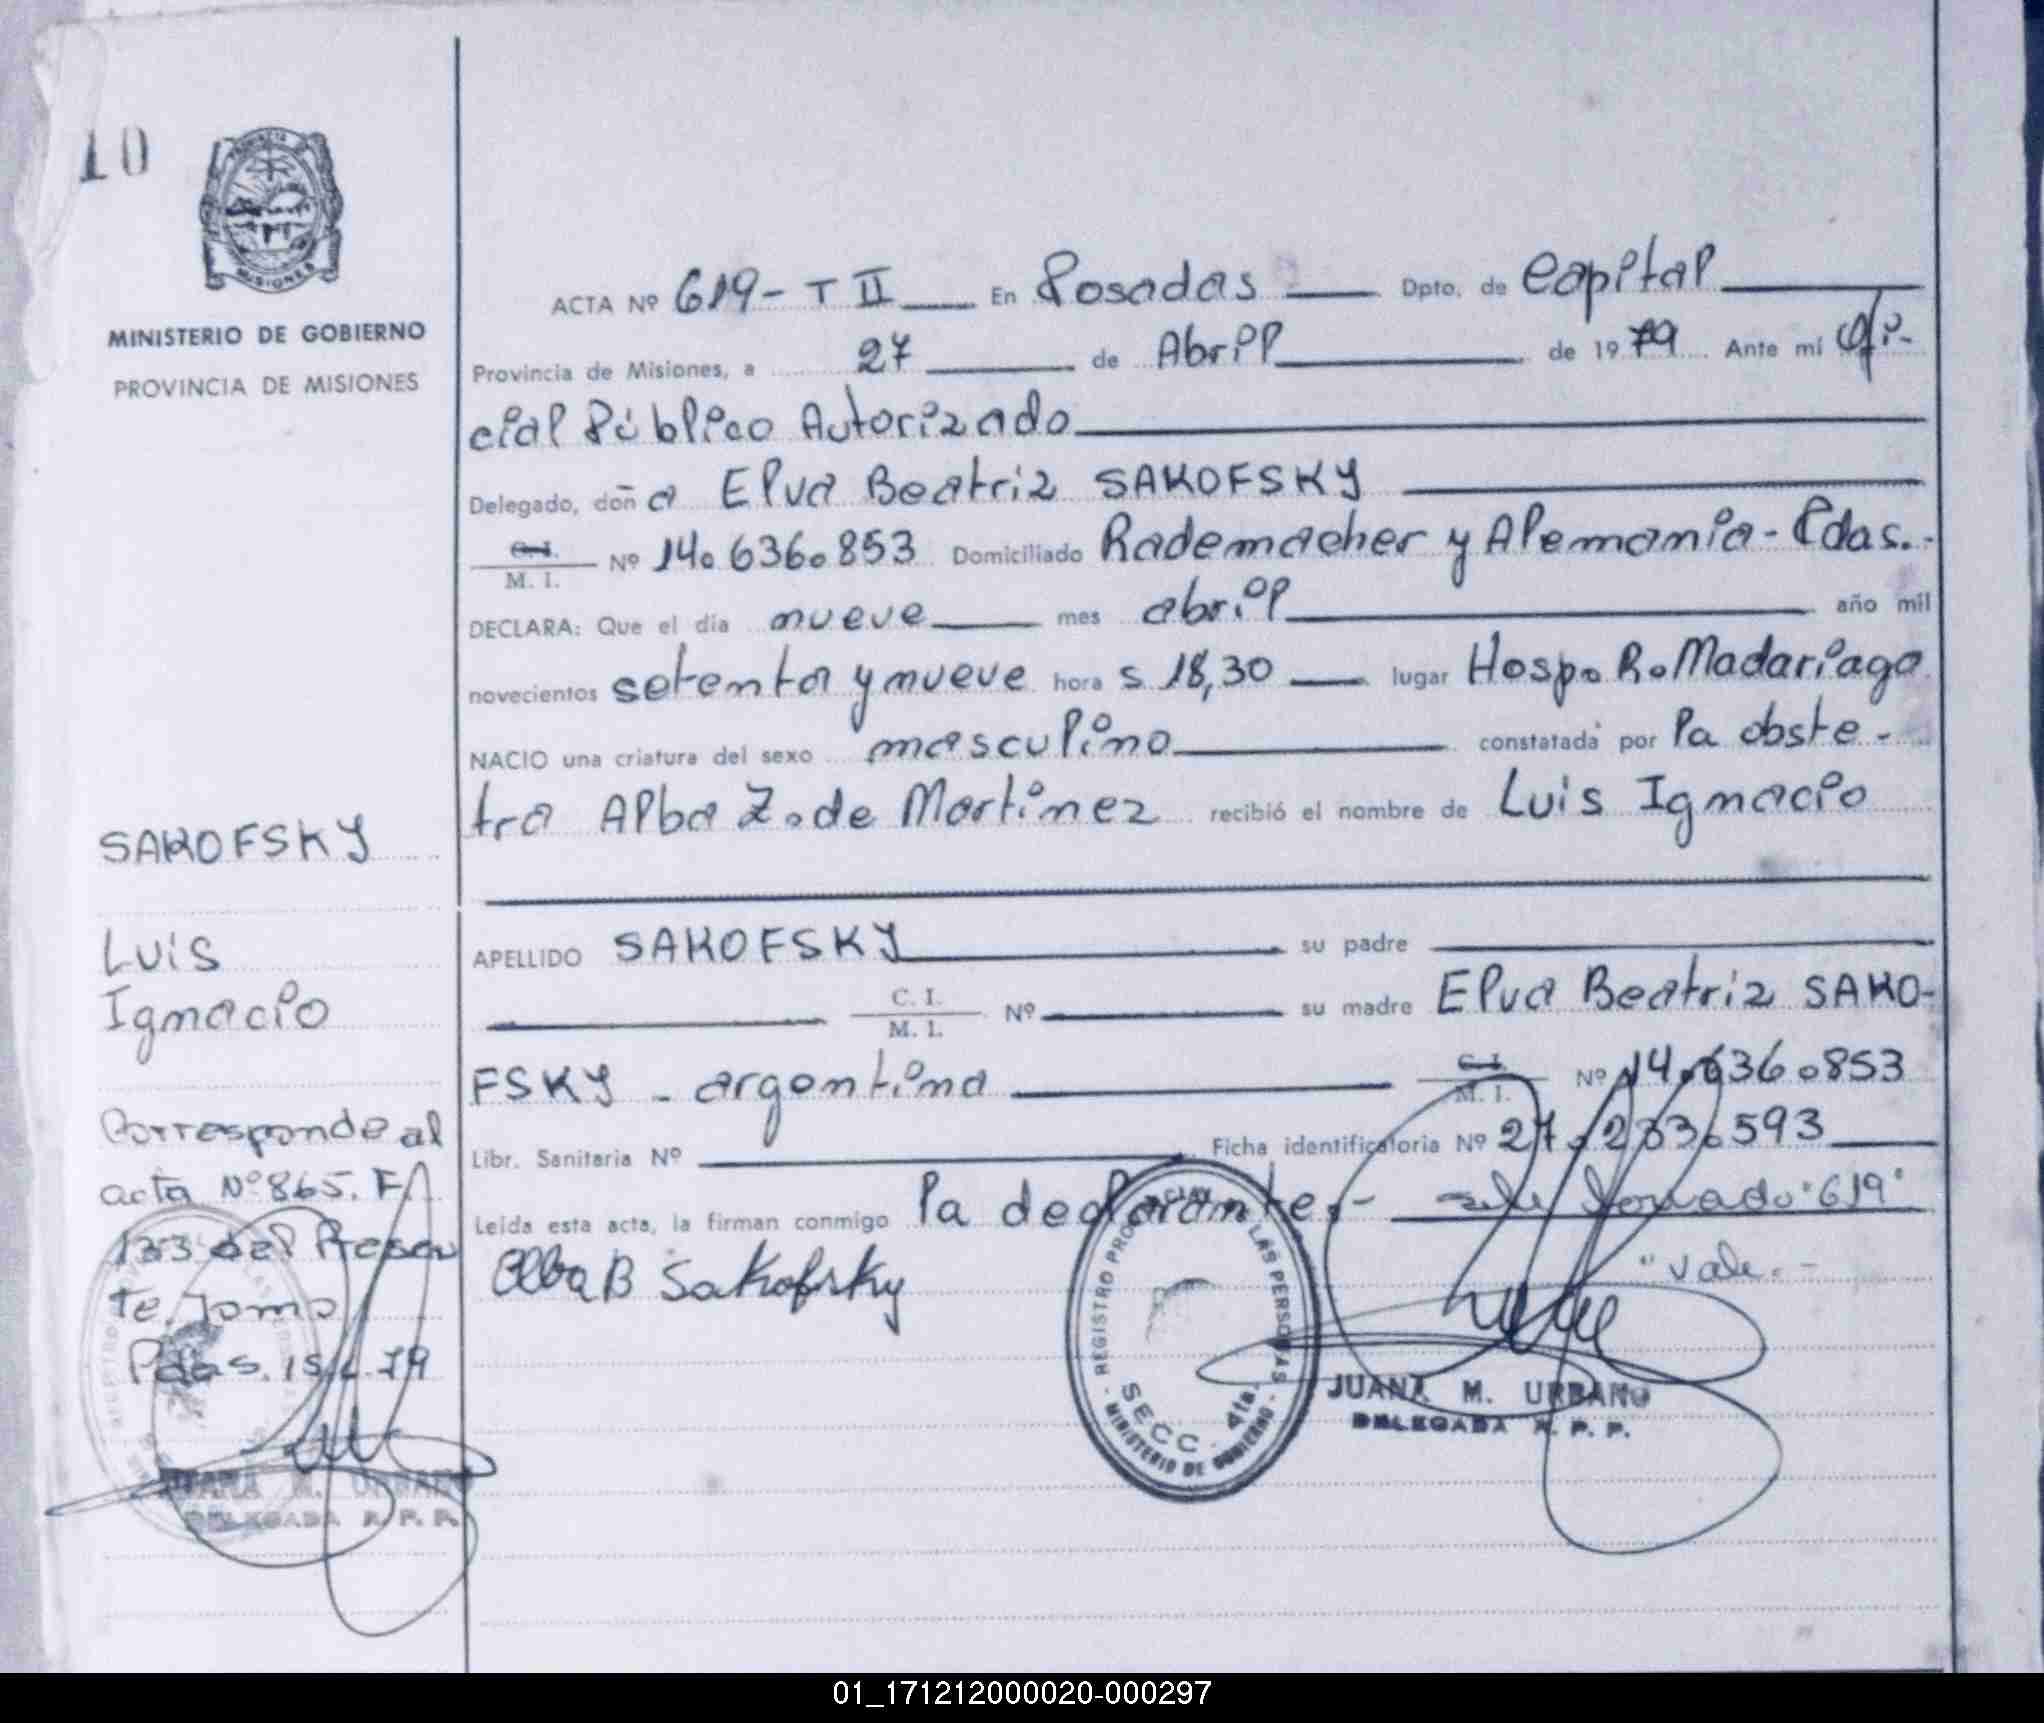 10
MINISTERIO DE GOBIERNO
PROVINCIA DE MISIONES
ACTA Nº 619 - T II En Posadas Dpto. de Capital
Provincia de Misiones, a 27 de Abril de 1979 Ante mi Ofi-
cial Público Autorizado
Delegado, doña Elva Beatriz SAKOFSKY
C. I. / M. I. Nº 14.636.853 Domiciliado Rademacher y Alemania - Pdas.-
DECLARA: Que el día nueve mes abril año mil
novecientos setenta y nueve hora s 18,30 lugar Hosp. R. Madariaga
NACIO una criatura del sexo masculino constatada por la obste-
tra Alba Z. de Martinez recibió el nombre de Luis Ignacio
APELLIDO SAKOFSKY su padre
C. I. / M. I. Nº su madre Elva Beatriz SAKO-
FSKY - argentina C. I. / M. I. Nº 14.636.853
Libr. Sanitaria Nº Ficha identificatoria Nº 27.233.593
Leída esta acta, la firman conmigo la declarante.- "619"
"Vale.-
Elba B Sakofsky
REGISTRO PROVINCIAL DE LAS PERSONAS
SECC. 4ta.
MINISTERIO DE GOBIERNO
JUANA M. URBANO
DELEGADA R. P. P.
SAKOFSKY
Luis
Ignacio
Corresponde al
acta Nº 865. F.
133 del Presen
te. Tomo
Pdas. 79
JUANA M. URBANO
DELEGADA R. P. P.
01_171212000020-000297